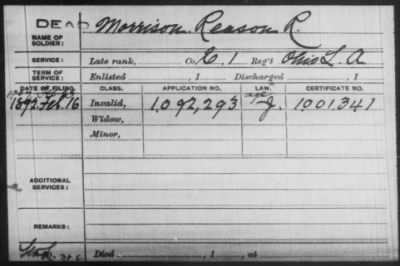 DEAD
NAME OF SOLDIER: Morrison Reason R.
SERVICE: Late rank, Co. E, 1 Reg't Ohio L. A
TERM OF SERVICE: Enlisted , 1 Discharged , 1
DATE OF FILING. CLASS. APPLICATION NO. LAW. CERTIFICATE NO.
1892 Feb. 16 Invalid, 1,092,293 J. 1001.341
Widow,
Minor,
ADDITIONAL SERVICES:
REMARKS:
Died , 1 , at